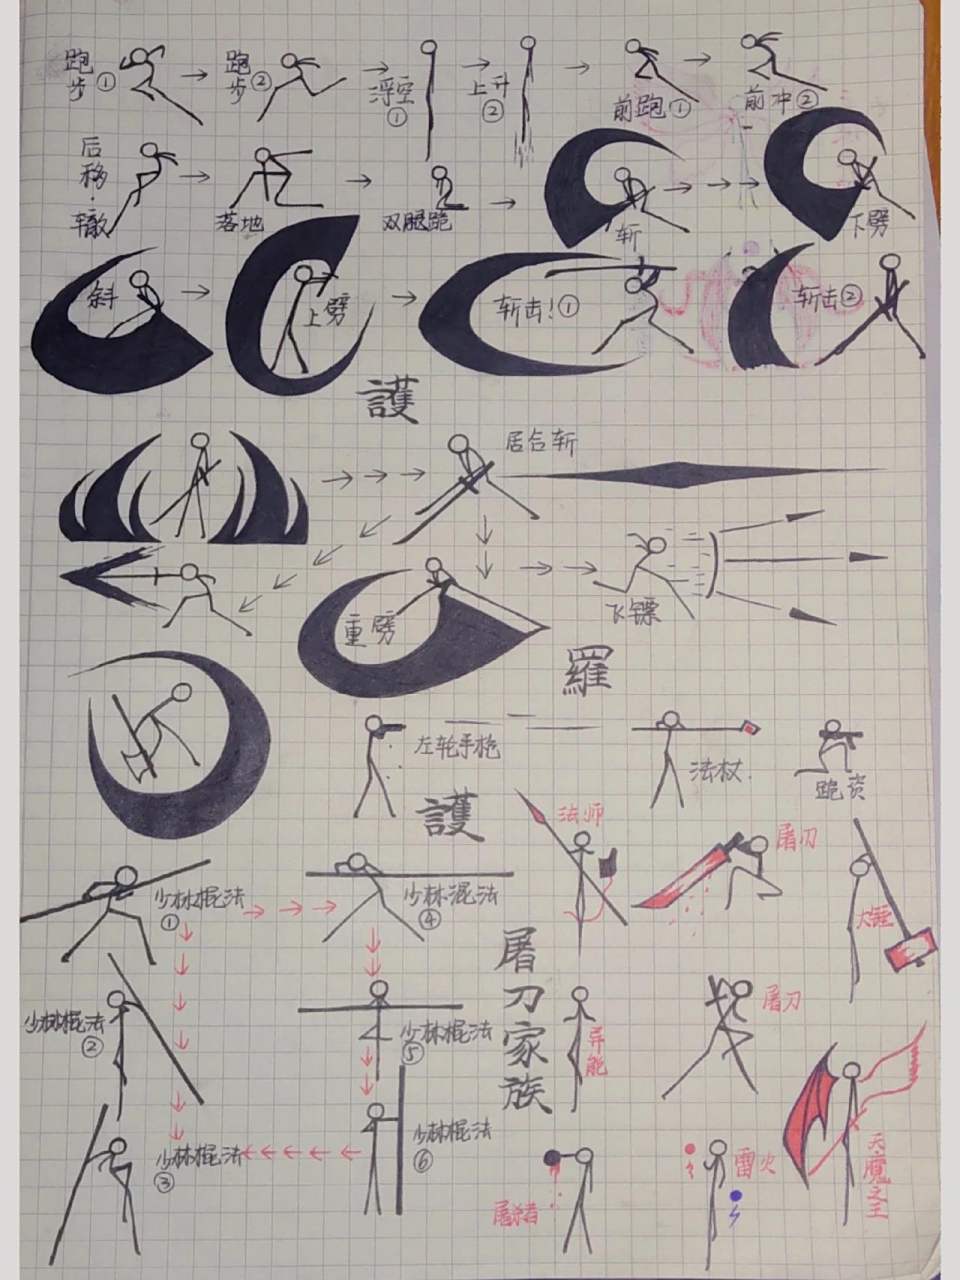 跑步①
跑步②
浮空①
上升②
前跑①
前冲②
后移·辙
落地
双腿跪
斩
下劈
斜
上劈
斩击!①
斩击②
護
居合斩
重劈
飞镖
羅
左轮手枪
法杖.
護
法师
屠刀
大锤
少林棍法①
少林混法④
少林棍法②
少林棍法⑤
少林棍法③
少林棍法⑥
屠刀家族
异能
屠刀
屠猪
雷火
天魔之王